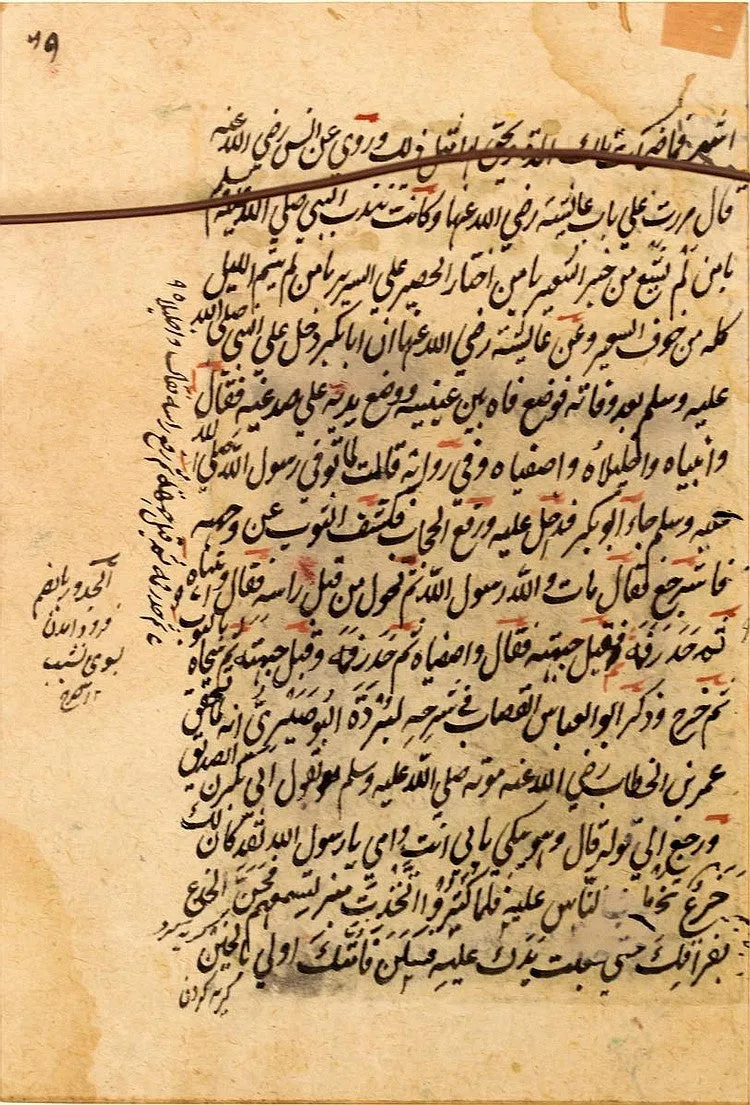 ٧٩
اشهر فما ضحكت تلك المدة وبحق لها مثل ذلك وروي عن انس رضي الله عنه
قال مررت علي باب عائشة رضي الله عنها وكانت تندب النبي صلي الله عليه وسلم
يا من لم يشبع من خبز الشعير يا من اختار الحصير علي السرير يا من لم ينم الليل
كله من خوف السعير وعن عائشة رضي الله عنها ان ابا بكر دخل علي النبي صلي الله
عليه وسلم بعد وفاته فوضع فاه بين عينيه ووضع يديه علي صدغيه فقال
وا نبياه وا خليلاه وا صفياه وفي رواية قالت لما توفي رسول الله صلي الله
عليه وسلم جاء ابو بكر فدخل عليه ورفع الحجاب فكشف الثوب عن وجهه
فاسترجع فقال مات والله رسول الله ثم تحول من قبل راسه فقال وا نبياه
ثم حدر فمه فقبل جبهته فقال وا صفياه ثم حدر فمه وقبل جبهته ثم سجاه بالثوب
ثم خرج وذكر ابو العباس القصاب في شرحه لبردة البوصيري انه لما تحقق
عمر بن الخطاب رضي الله عنه موته صلي الله عليه وسلم بقول ابي بكر الصديق
ورجع الي قوله قال وهو يبكي بابي انت وامي يا رسول الله لقد كان لك
جزع تخطب الناس عليه فلما كثروا اتخذت منبر لتسمعهم فحن الجذع
بفراقك حتي جعلت يدك عليه فسكن فامتك اولي بالحنين
ثم حدر فمه ثم قبل جبهته ثم رفع راسه فقال وا خليلاه
الحدور بالضم
فرود آمدن
بسوى نشيب
١٢ صراح
گريه كردن